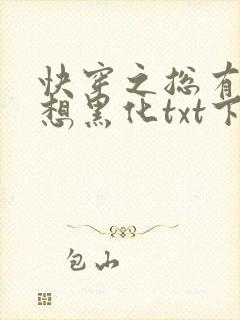 快穿之总有
想黑化txt下
包山